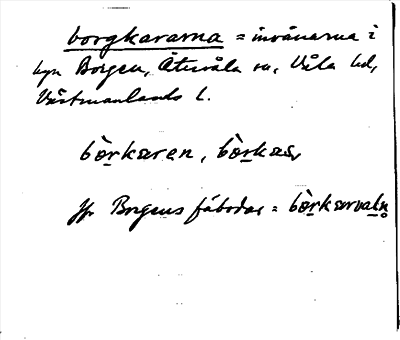 borgkararna = invånarna i
byn Borgen, Östervåla sn, Våla hd,
Västmanlands l.
bò̱rkaren, bò̱rkaɹ
Jfr Borgens fäbodar = bò̱rkarvaḷn̥